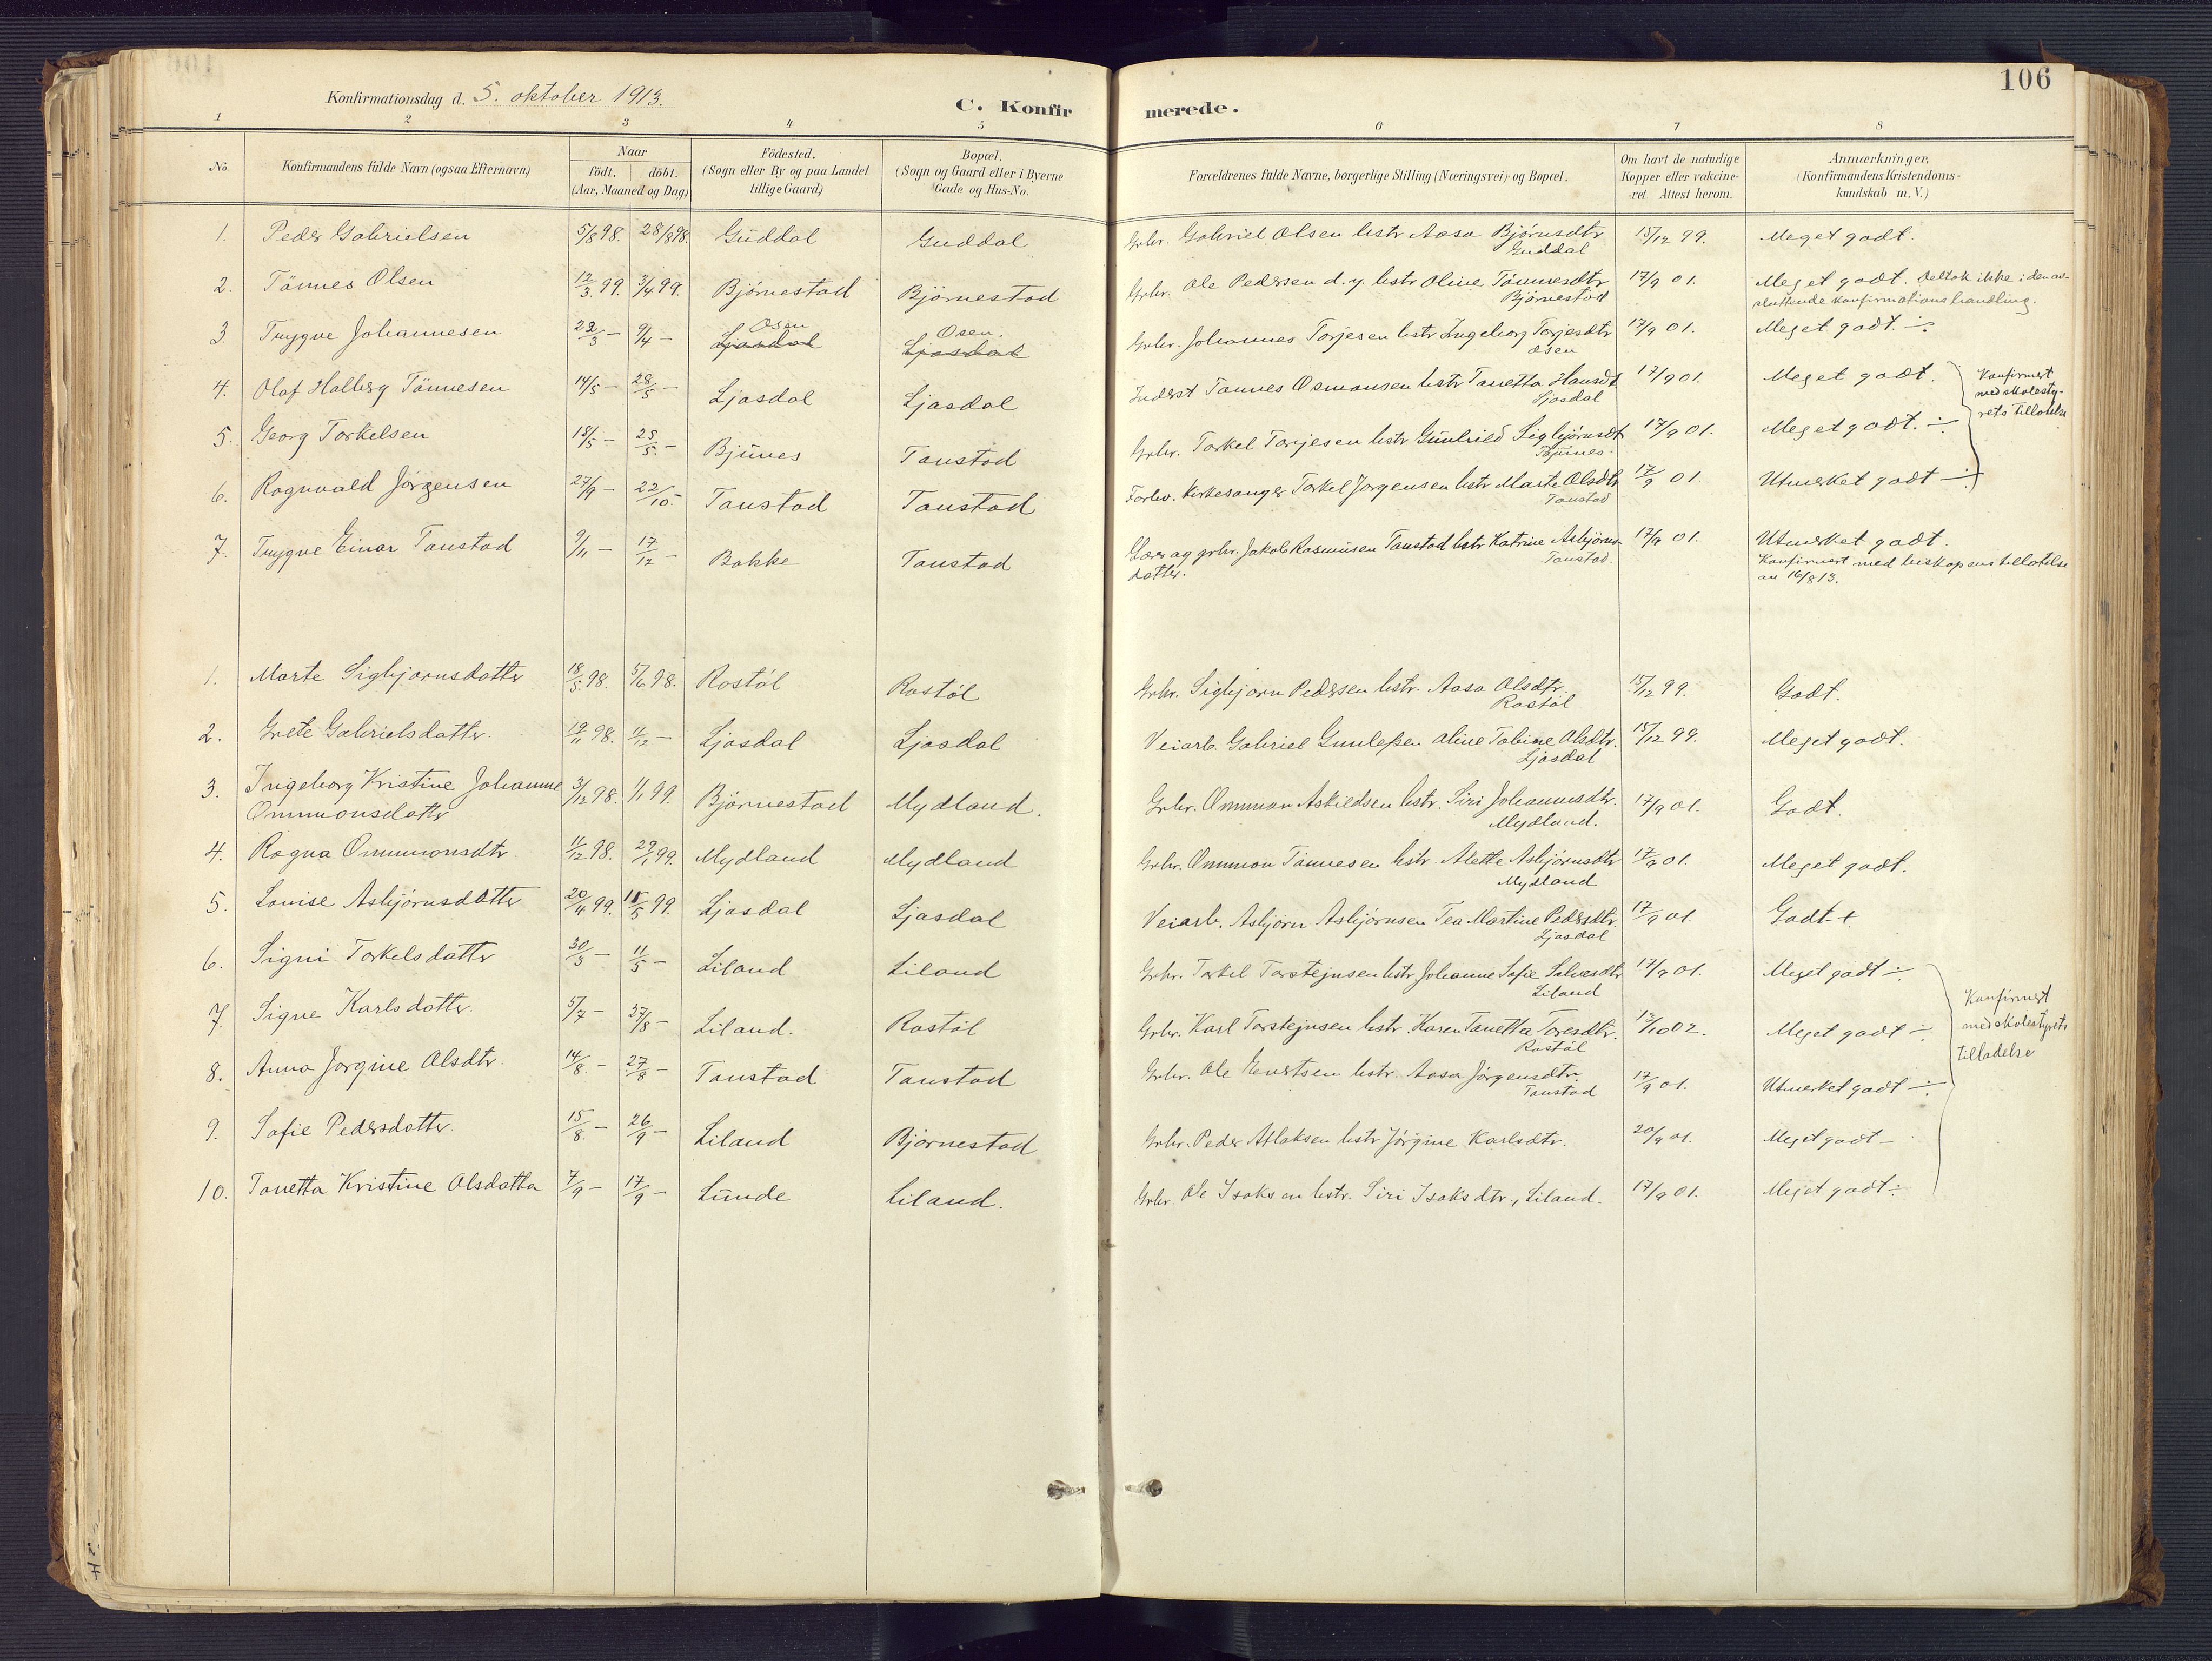 106
Konfirmationsdag d. 5. oktober 1913.
C. Konfir merede.
1 2 3 4 5 6 7 8
No. Konfirmandens fulde Navn (ogsaa Efternavn) Naar födt. döbt. (Aar, Maaned og Dag) Födested. (Sogn eller By og paa Landet tillige Gaard) Bopæl. (Sogn og Gaard eller i Byerne Gade og Hus-No. Forældrenes fulde Navne, borgerlige Stilling (Næringsvei) og Bopæl. Om havt de naturlige Kopper eller vakcineret. Attest herom. Anmærkninger. (Konfirmandens Kristendomskundskab m. V.)
1. Peder Gabrielsen 5/8 98. 28/8 98. Guddal Guddal Grbr. Gabriel Olsen hstr Aasa Bjørnsdtr Guddal 15/12 99. Meget godt.
2. Tönnes Olsen 12/3 99. 3/4 99. Bjørnestad Björnestad Grbr. Ole Pedersen d. y. hstr Oline Tönnesdtr Bjørnestad 17/9 01. Meget godt. Deltok ikke i den av-
sluttende konfirmationshandling.
3. Trygve Johannesen 22/3 – 9/4 – Osen Ljosdal Osen. Ljosdal Grbr. Johannes Torjesen hstr Ingeborg Torjesdtr Osen 17/9 01. Meget godt. ÷
4. Olaf Halberg Tönnesen 14/5 – 28/5 – Ljosdal Ljosdal Inderst Tönnes Osmonsen hstr Tanetta Hansdt Ljosdal 17/9 01. Meget godt.
Konfirmert
med skolesty-
rets tillatelse
5. Georg Torkelsen 18/5 – 28/5 – Bjunes Tonstad Grbr. Torkel Torjesen hstr Gunhild Sigbjørnsdt Bjunes. 17/9 01. Meget godt. ÷
6. Rognvald Jörgensen 27/9 – 22/10 – Tonstad Tonstad Forhv. Kirkesanger Torkel Jørgensen hstr Marte Olsdtr Tonstad 17/9 01. Utmerket godt ÷
7. Trygve Einar Tonstad 9/11 – 17/12 – Bakke Tonstad Lærer og grbr. Jakob Rasmusen Tonstad hstr Katrine Asbjørns-
datter. Tonstad. 17/9 01. Utmerket godt.
Konfirmert med biskopens tillatelse
av 16/8 13.
1. Marte Sigbjørnsdatter 18/5 98. 5/6 98. Rostøl Rostøl Grbr. Sigbjørn Pedersen hstr. Aasa Olsdtr. Rostøl 15/12 99. Godt.
2. Grete Gabrielsdatter. 19/11 98. 4/12 – Ljosdal Ljosdal Veiarb. Gabriel Gunleksen Oline Tobine Olsdtr. Ljosdal 15/12 99. Meget godt.
3. Ingeborg Kristine Johanne
Ommonsdatter 3/12 98. 1/1 99. Björnestad Mydland. Grbr. Ommon Askildsen hstr. Siri Johannesdtr. Mydland. 17/9 01. Godt.
4. Ragna Ommonsdtr. 11/12 98. 29/1 99. Mydland Mydland Grbr. Ommon Tönnesen hstr. Alette Asbjørnsdtr Mydland 17/9 01. Meget godt.
5. Louise Asbjörnsdatter 20/4 99. 11/5 99. Ljosdal Ljosdal Veiarb. Asbjörn Asbjørnsen Tea Martine Pedersdtr. Ljosdal 17/9 01. Godt +
6. Signi Torkelsdatter 30/3 – 11/5 – Liland Liland Grbr. Torkel Torstejnsen hstr Johanne Sofie Salvesdtr Liland 17/9 01. Meget godt ÷
7. Signe Karlsdatter. 5/7 – 27/8 – Liland. Rostöl Grbr. Karl Torstejnsen hstr. Karen Tanetta Toresdtr. Rostöl 13/10 02. Meget godt ÷
Konfirmert
med skolestyrets
tilladelse
8. Anna Jorgine Olsdtr. 14/8 – 27/8 – Tonstad Tonstad Grbr. Ole Evertsen hstr. Aasa Jörgensdtr. Tonstad 17/9 01. Utmerket godt ÷
9. Sofie Pedersdatter. 15/8 – 26/9 – Liland Bjørnestad Grbr. Peder Atlaksen hstr Jörgine Karlsdtr. 20/9 01. Meget godt –
10. Tonetta Kristine Olsdatta 7/9 – 17/9 – Lunde Liland. Grbr. Ole Isaksen hstr. Siri Isaksdtr, Liland. 17/9 01. Meget godt ÷